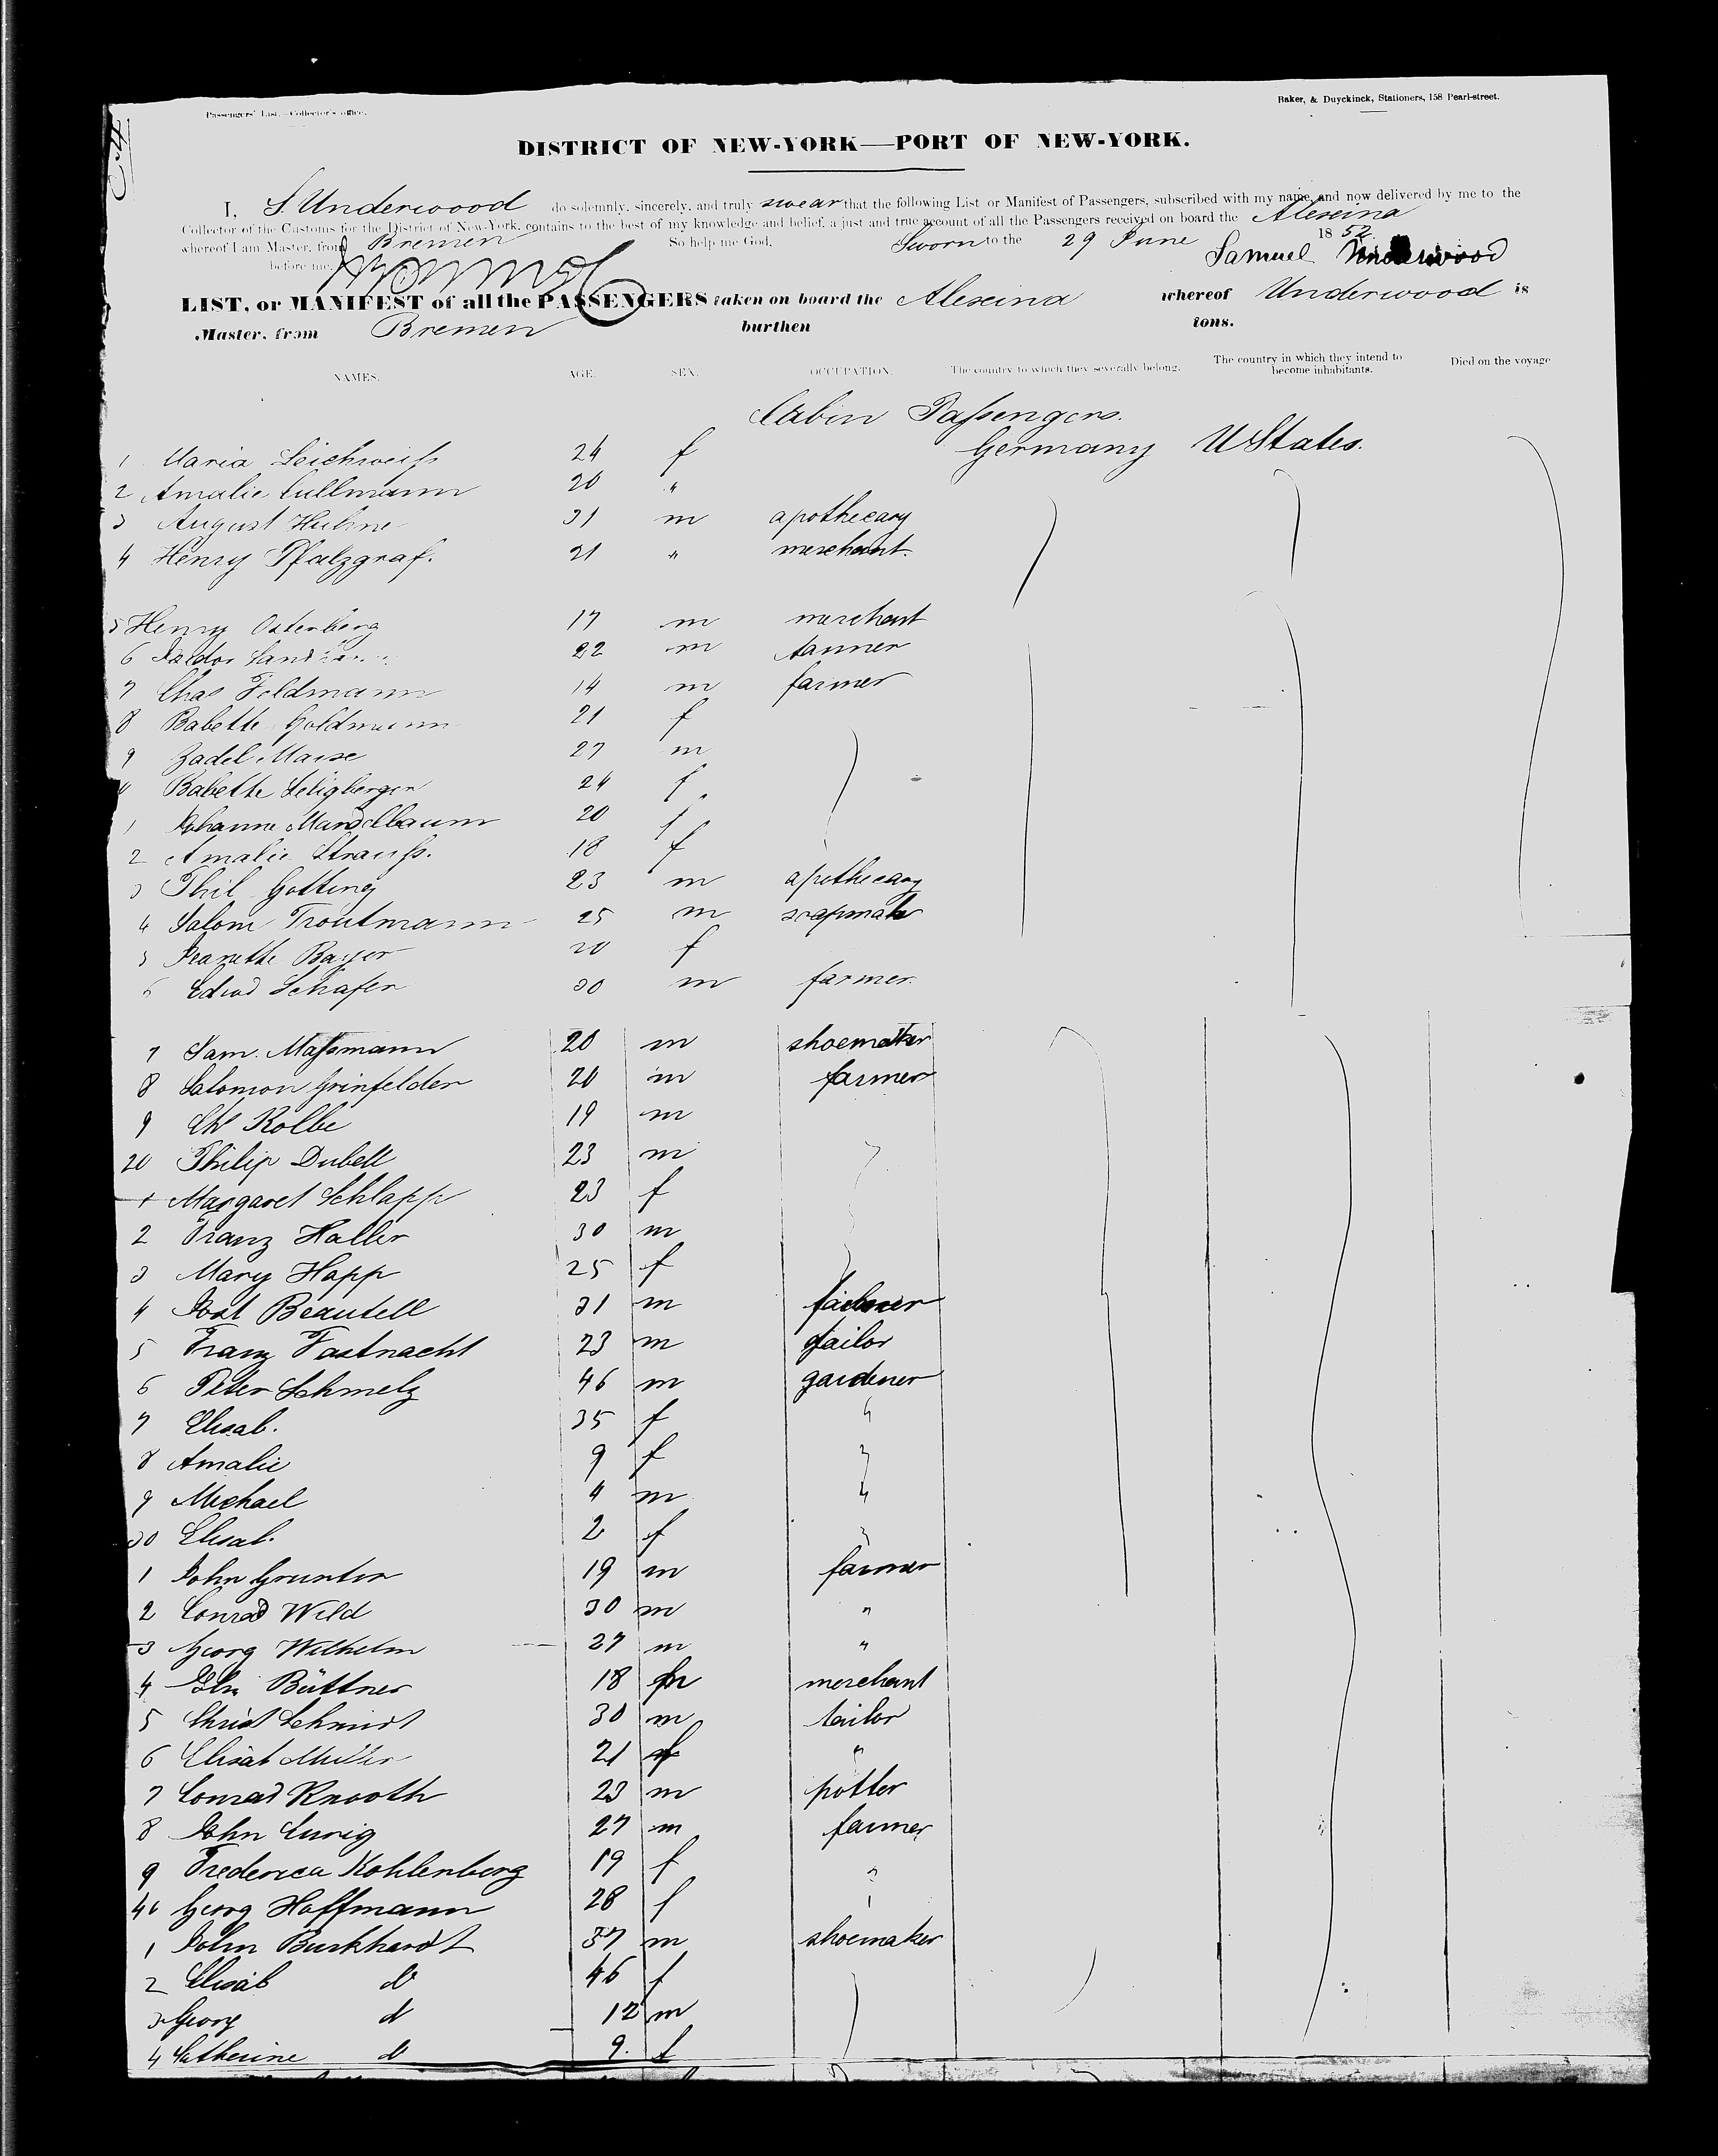 Passengers' List.—Collector's office.
Baker, & Duyckinck, Stationers, 158 Pearl-street.
DISTRICT OF NEW-YORK—PORT OF NEW-YORK.
I, S. Underwood do solemnly, sincerely, and truly swear that the following List or Manifest of Passengers, subscribed with my name, and now delivered by me to the
Collector of the Customs for the District of New-York, contains to the best of my knowledge and belief, a just and true account of all the Passengers received on board the Alexina
whereof I am Master, from Bremen So help me God.
Sworn to the 29 June 1852
before me, Samuel Underwood
LIST, or MANIFEST of all the PASSENGERS taken on board the Alexina whereof Underwood is
Master, from Bremen burthen tons.
NAMES. AGE. SEX. OCCUPATION. The country to which they severally belong. The country in which they intend to become inhabitants. Died on the voyage
Cabin Passengers.
1 Maria Leichweiss 24 f Germany U States.
2 Amalie Cullmann 20 "
3 August Huhne 31 m apothecary
4 Henry Pfalzgraf. 21 " merchant.
5 Henry Osterberg 17 m merchant
6 Isidor 22 m tanner
7 Chas Feldmann 14 m farmer
8 Babette Goldmann 21 f
9 Zadel Mause 27 m
Babette Seligberger 24 f
1 Johanne Mandelbaum 20 f
2 Amalie Strauss. 18 f
3 Phil Gotting 23 m apothecary
4 Salom Troutmann 25 m soapmak
5 Jeanette Bayer 20 f
6 Edwd Schafer 30 m farmer.
7 Sam. Massmann 20 m shoemaker
8 Salomon Grinfelder 20 m farmer
9 Ch Kolbe 19 m
20 Philip Dubell 23 m
1 Margaret Schlapp 23 f
2 Franz Haller 30 m
3 Mary Happ 25 f
4 Jost Beautell 31 m farmer
5 Franz Fastnacht 23 m tailor
6 Peter Schmelz 46 m gardener
7 Elisab. 35 f "
8 Amalie 9 f "
9 Michael 4 m "
30 Elisab. 2 f "
1 John Grunter 19 m farmer
2 Conrad Wild 30 m "
3 Georg Wilhelm 27 m "
4 Büttner 18 m merchant
5 Christ Schmidt 30 m tailor
6 Elisab Muller 21 f "
7 Conrad Knooth 23 m potter
8 John Lurig 27 m farmer
9 Frederica Kohlenberg 19 f "
40 Georg Hoffmann 28 f
1 John Burkhardt 37 m shoemaker
2 Elisab do 46 f
3 Georg do 12 m
4 Catherine do 9. f